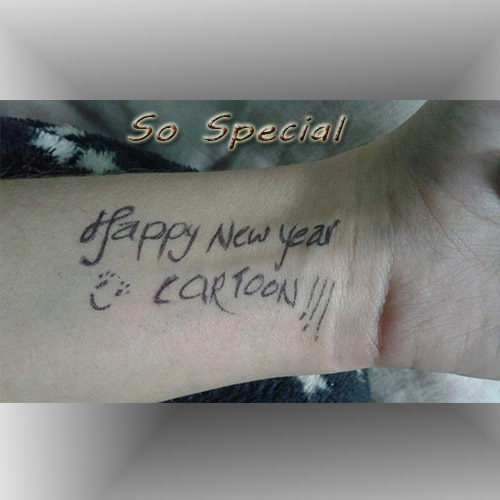 So Special
Happy New year
CARTOON!!!